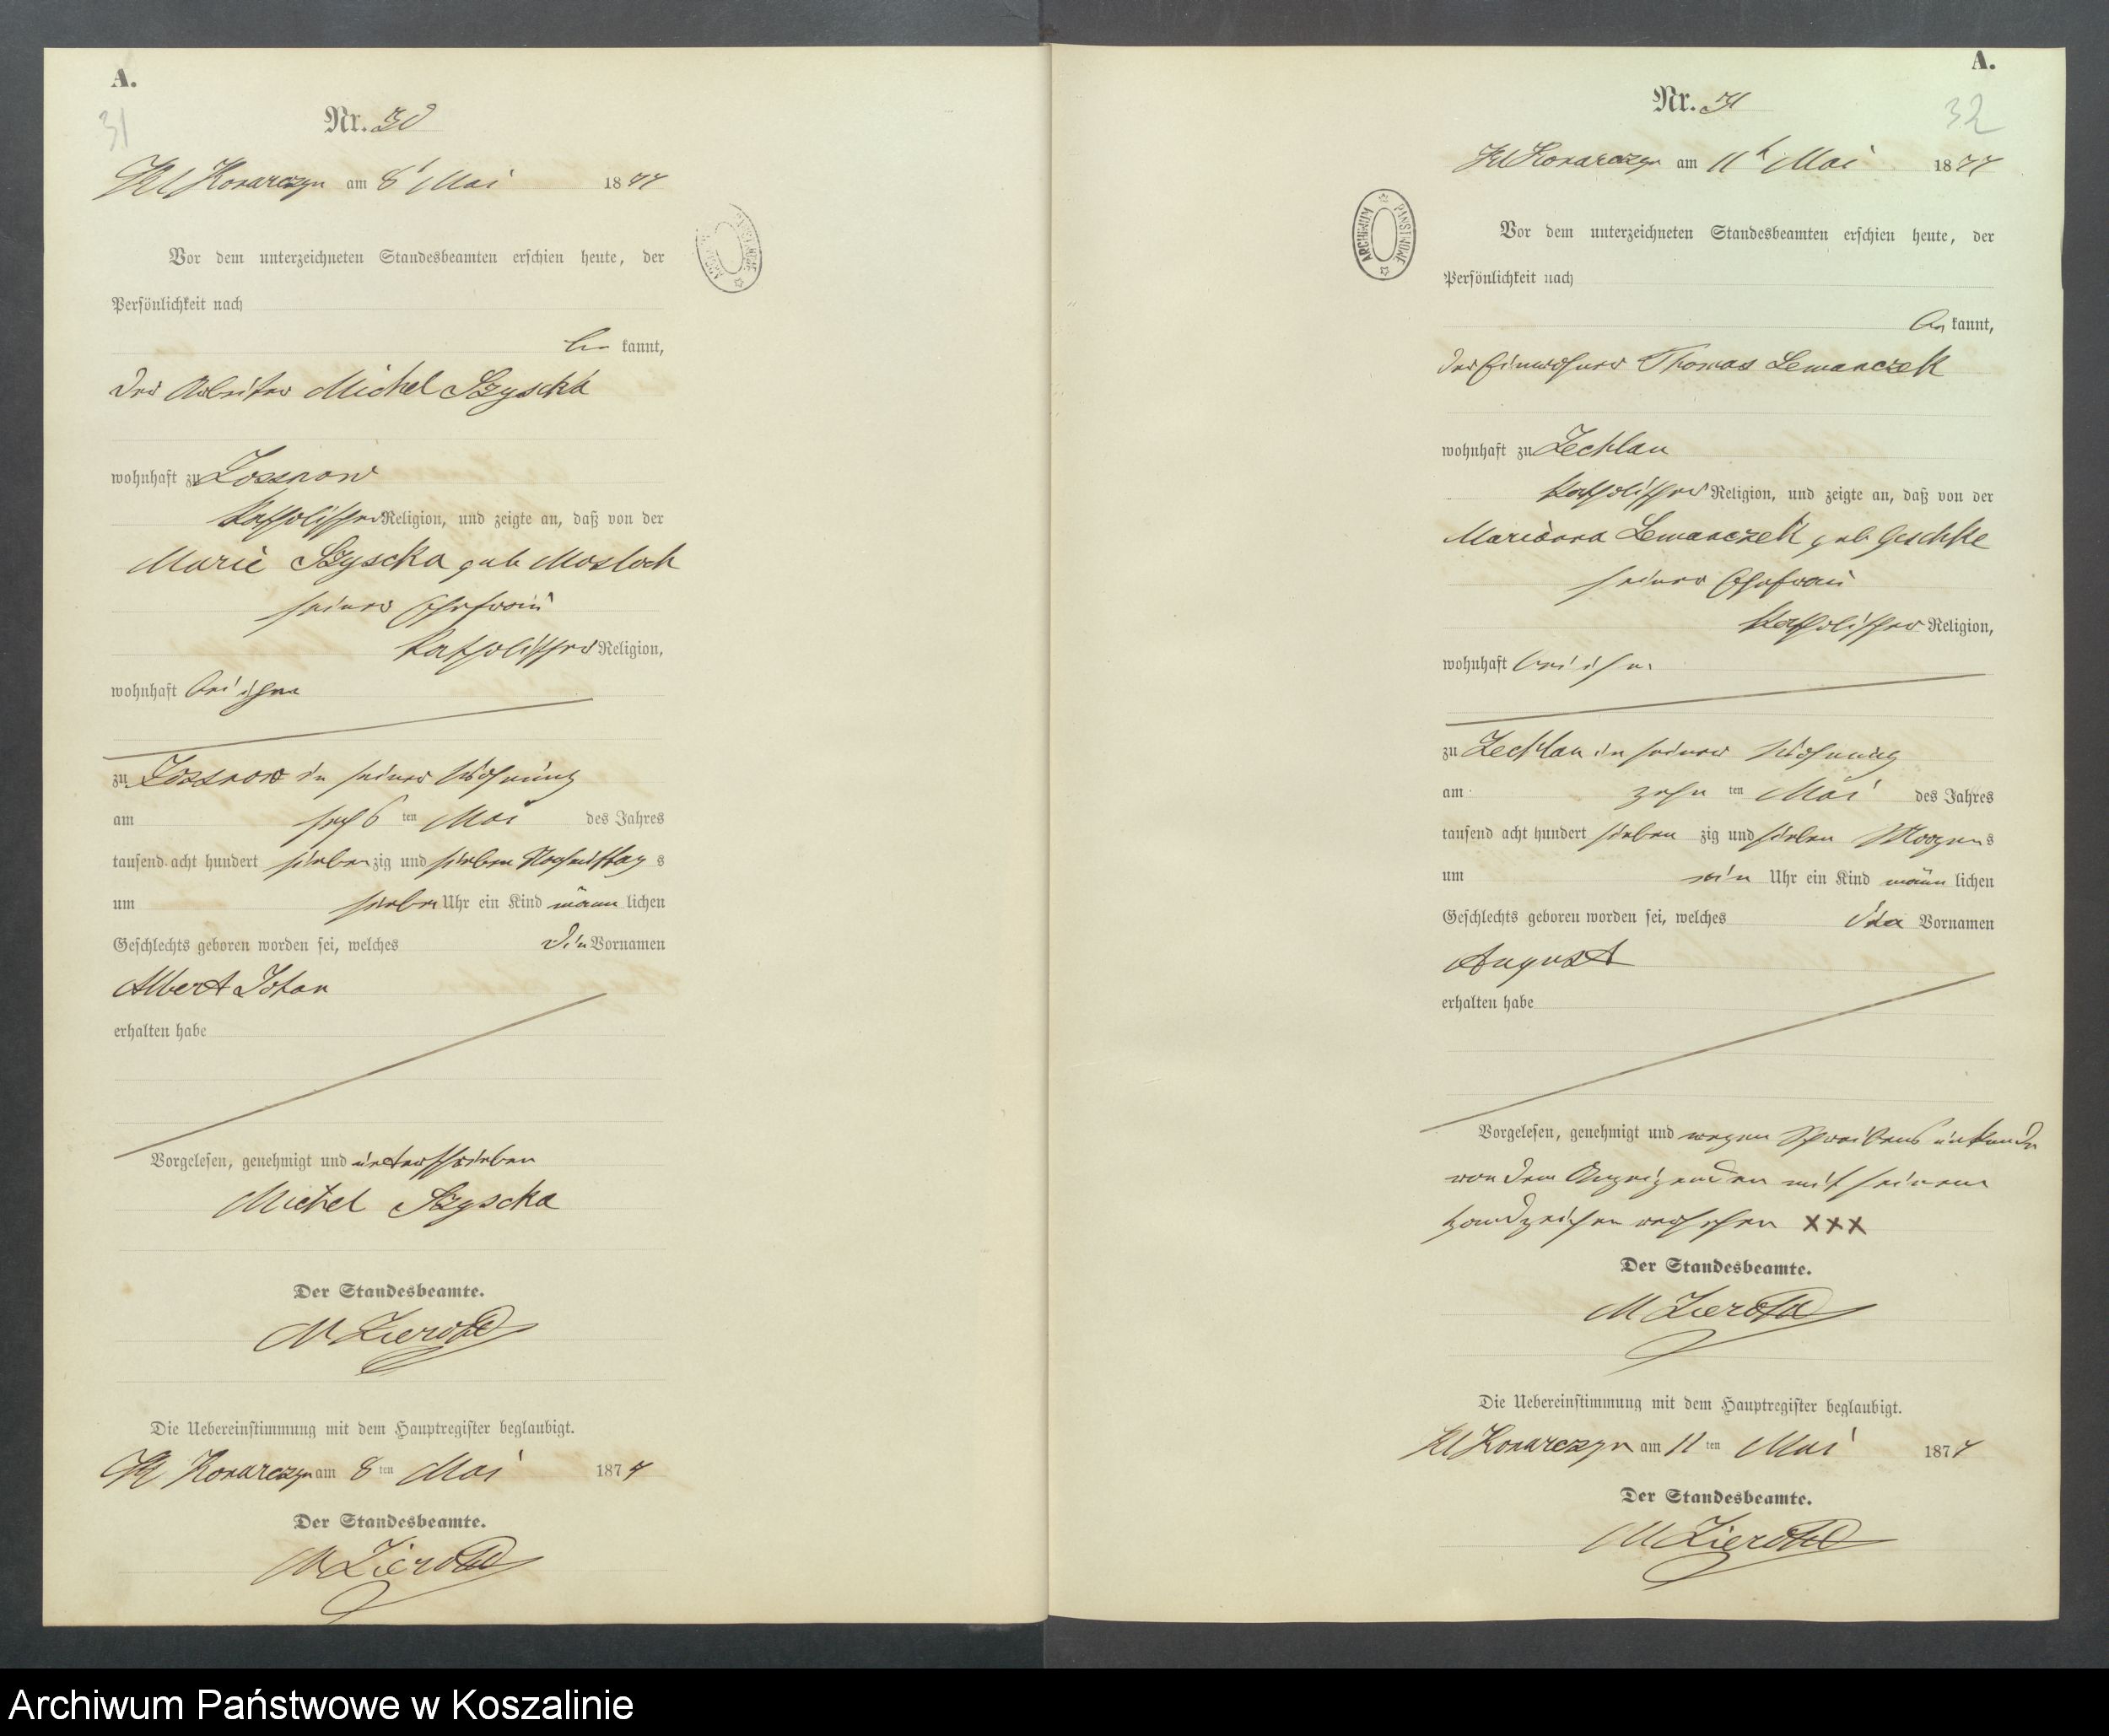 A.
31
Nr. 30
Kl Konarczyn am 8t Mai 1877
Vor dem unterzeichneten Standesbeamten erschien heute, der
Persönlichkeit nach
be kannt,
der Arbeiter Michel Szyscka
wohnhaft zu Zossnow
katholischer Religion, und zeigte an, daß von der
Marie Szyscka geb Mosloch
seiner Ehefrau
katholischer Religion,
wohnhaft bei ihm
zu Zossnow in seiner Wohnung
am sechs ten Mai des Jahres
tausend acht hundert sieben zig und sieben Nachmittag s
um sieben Uhr ein Kind männ lichen
Geschlechts geboren worden sei, welches die Vornamen
Albert Johan
erhalten habe
Vorgelesen, genehmigt und unterschrieben
Michel Szyscka
Der Standesbeamte.
M Zieroth
Die Uebereinstimmung mit dem Hauptregister beglaubigt.
Kl Konarczyn am 8 ten Mai 1877
Der Standesbeamte.
M Zieroth
A.
32
Nr. 31
Kl Konarczyn am 11t Mai 1877
ARCHIWUM PAŃSTWOWE
Vor dem unterzeichneten Standesbeamten erschien heute, der
Persönlichkeit nach
be kannt,
der Einwohner Thomas Lemanczek
wohnhaft zu Zechlau
katholischer Religion, und zeigte an, daß von der
Marianna Lemanczek geb Geschke
seiner Ehefrau
katholischer Religion,
wohnhaft bei ihm
zu Zechlau in seiner Wohnung
am zehn ten Mai des Jahres
tausend acht hundert sieben zig und sieben Morgens
um ein Uhr ein Kind männ lichen
Geschlechts geboren worden sei, welches den Vornamen
August
erhalten habe
Vorgelesen, genehmigt und wegen Schreibens unkunde
von dem Anzeigenden mit seinem
Handzeichen versehen XXX
Der Standesbeamte.
M Zieroth
Die Uebereinstimmung mit dem Hauptregister beglaubigt.
Kl Konarczyn am 11 ten Mai 1877
Der Standesbeamte.
M Zieroth
Archiwum Państwowe w Koszalinie